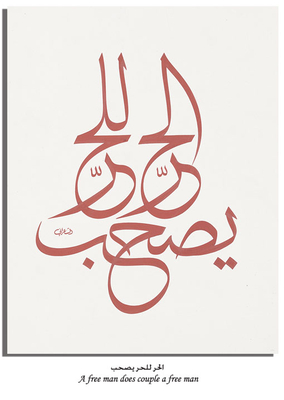 الحرّ للحرّ
يصحب
الحر للحر يصحب
A free man does couple a free man